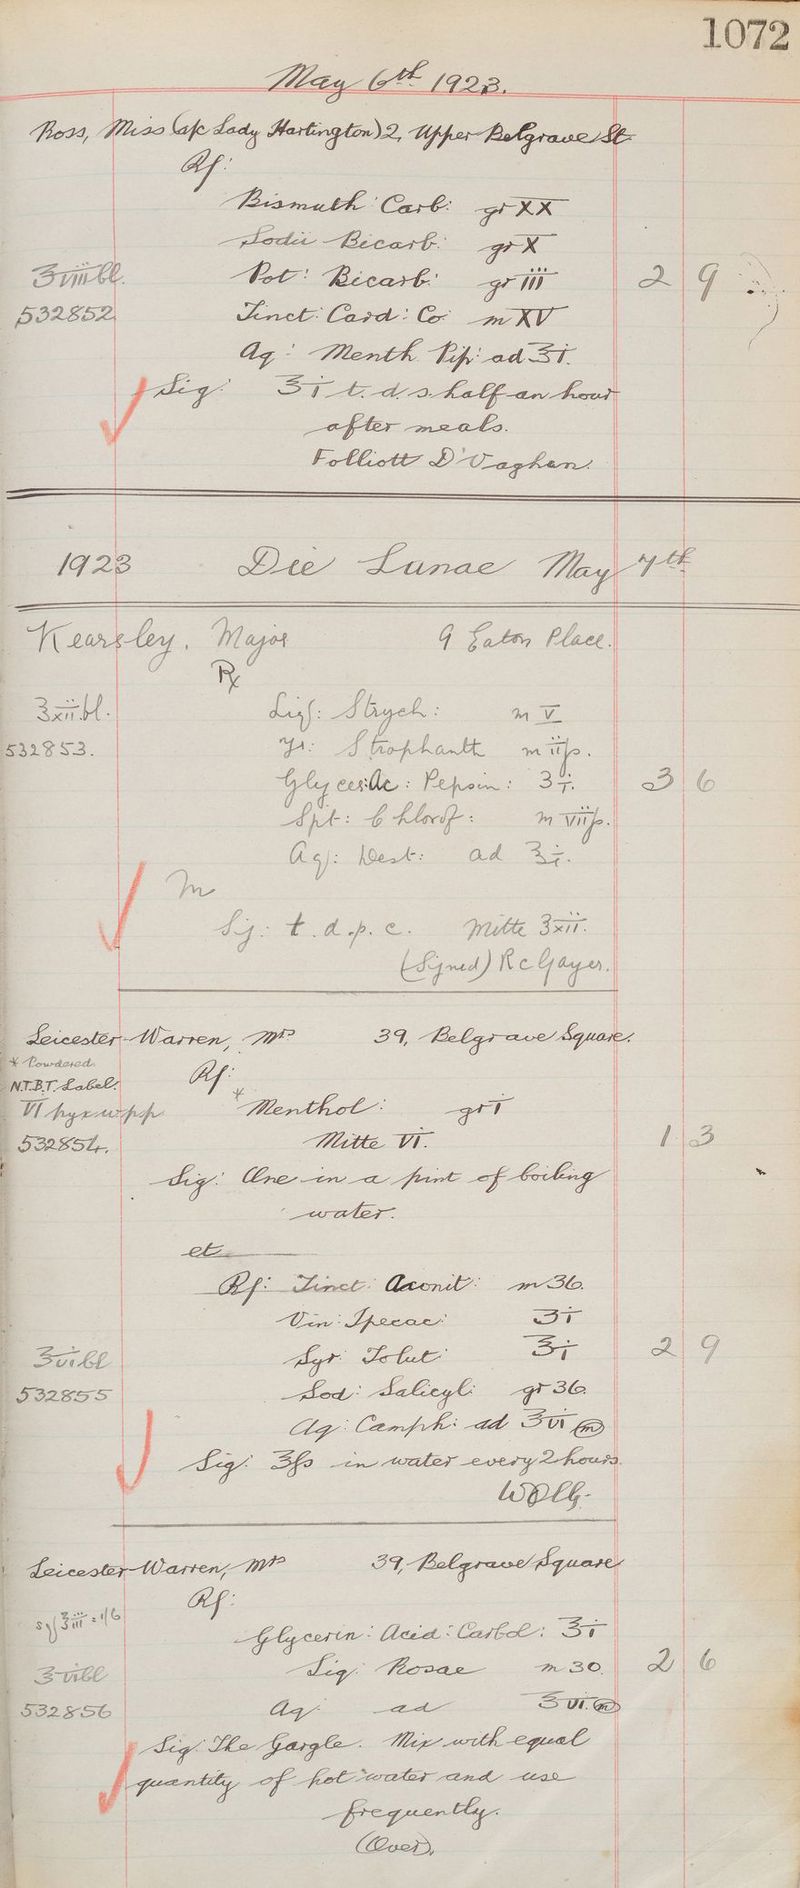 1072
May 6th 1923.
Ross, Miss (a/c Lady Hartington) 2, Upper Belgrave St.
Rx:
Bismuth Carb: gr XX
Sodii Bicarb: gr X
℥viii bl. Pot: Bicarb: gr iii 2 9
532852 Tinct: Card: Co: m XV
Aq: Menth. Pip: ad ℥i.
Sig: ℥i t.d.s. half an hour
after meals.
Folliott D'Vaghan.
1923 Die Lunae May 7th
Kearsley. Major 9 Eaton Place.
Rx
℥xii.bl. Liq: Strych: m V
532853. Tr: Strophanth m iiſs.
Glycer: Ac: Pepsin: ʒi. 3 6
Spt: Chlorof: m viiſs.
Aq: Dest: ad ℥i.
M
Sig: t.d.p.c. Mitte ℥xii.
(Signed) R c Gayer.
Leicester-Warren, Mrs 39, Belgrave Square.
* Powdered.
N.T.B.T. Label. Rx:
VI pyx wpp * Menthol: gr i
532854. Mitte VI. 1 3
Sig: One in a pint of boiling
water.
et
Rx: Tinct: Aconit: m 36.
Vin: Ipecac: ʒi
℥vi bl Syr: Tolut: ℥i 2 9
532855 Sod: Salicyl: gr 36.
Aq: Camph: ad ℥vi (m)
Sig: ℥ſs in water every 2 hours.
Leicester-Warren, Mrs 39, Belgrave Square
Rx:
℥iii = 1/6
Glycerin: Acid: Carbol: ℥i
℥vi bl Liq: Rosae m 30. 2 6
532856 Aq: ad ℥vi. (m)
Sig: The Gargle. Mix with equal
quantity of hot water and use
frequently.
(Over).